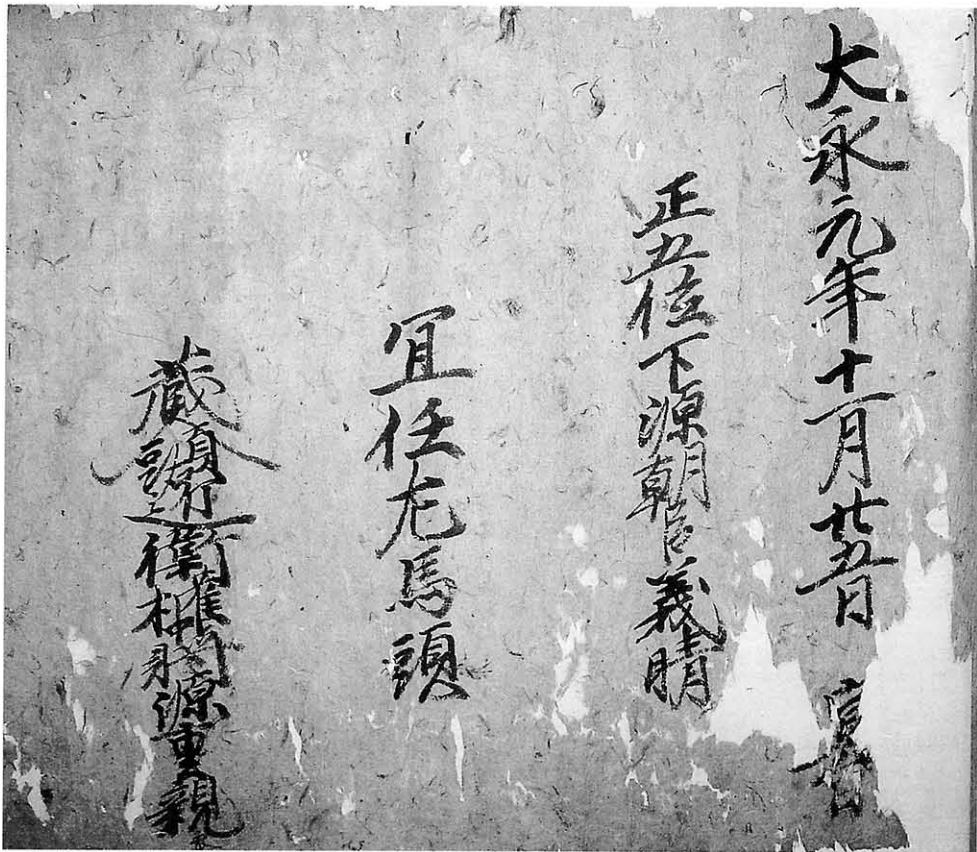 大永元年十一月廿五日 宣旨
正五位下源朝臣義晴
宜任左馬頭
蔵人頭近衛権中将源重親